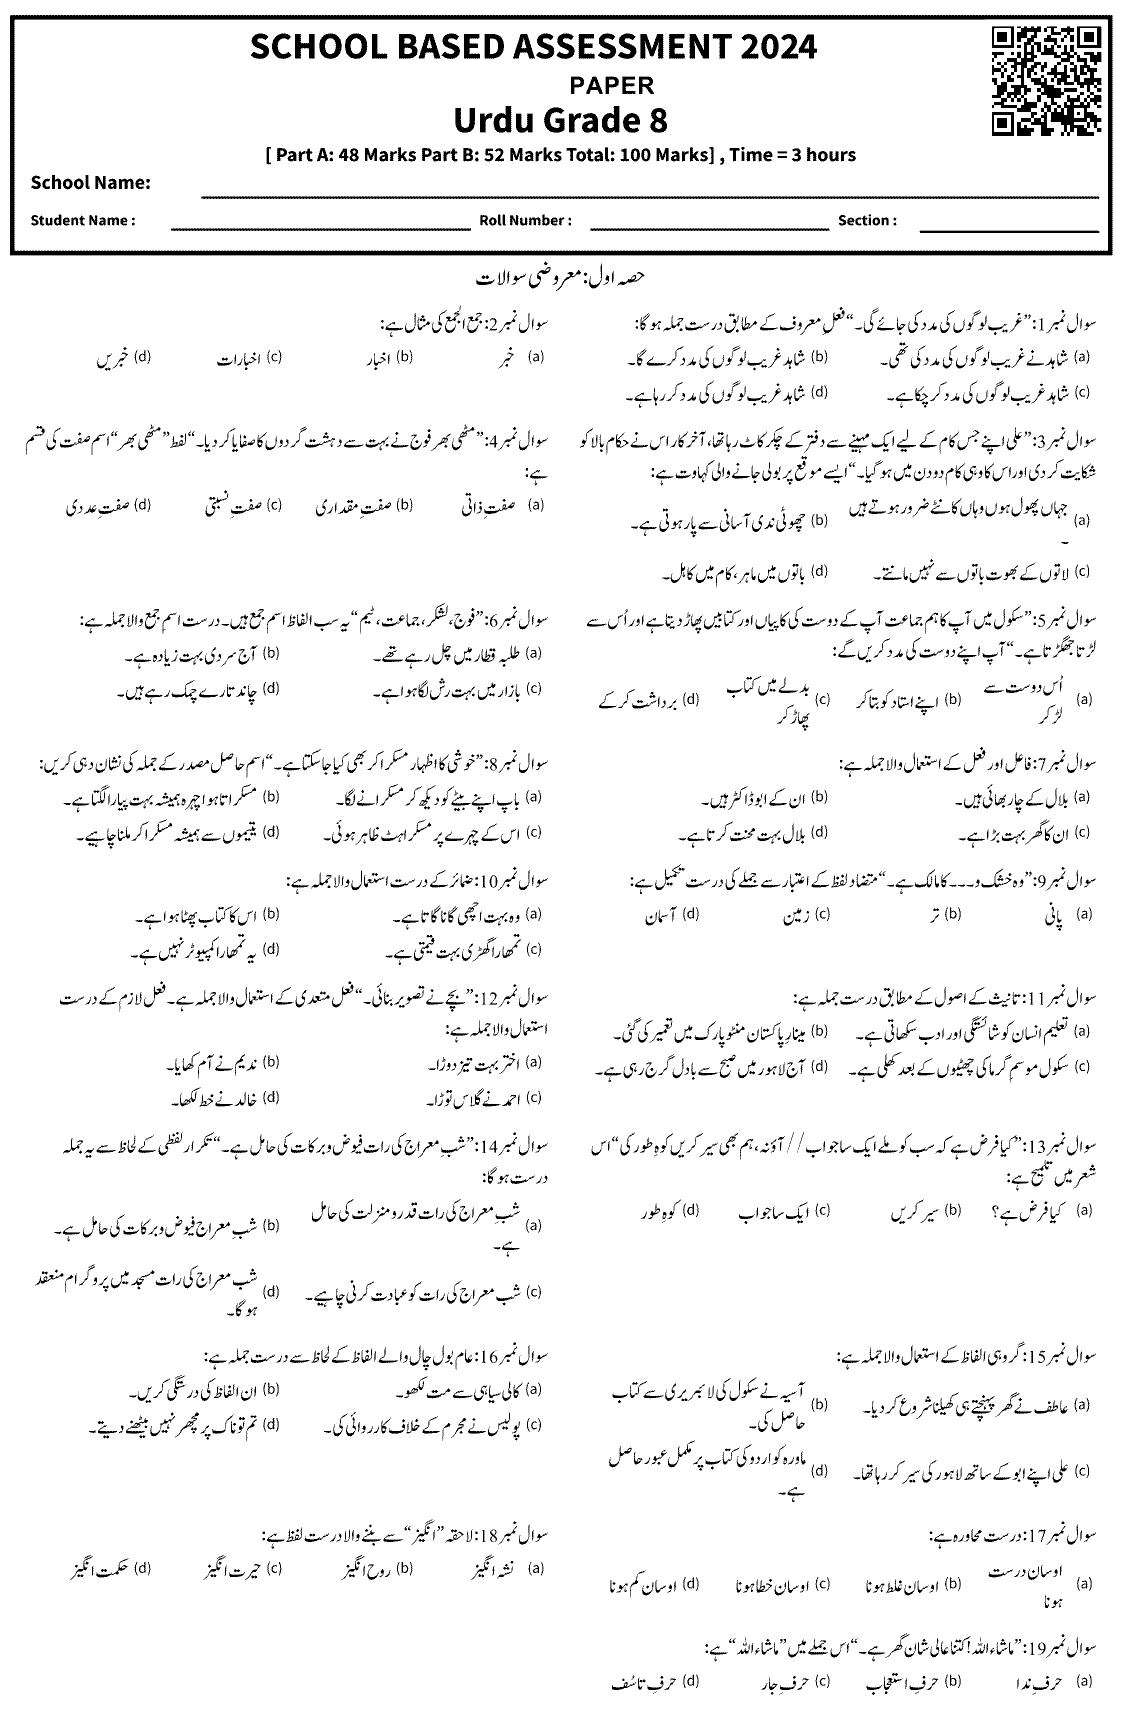 SCHOOL BASED ASSESSMENT 2024
PAPER
Urdu Grade 8
[ Part A: 48 Marks Part B: 52 Marks Total: 100 Marks] , Time = 3 hours
School Name:
Student Name : Roll Number : Section :
حصہ اول: معروضی سوالات
سوال نمبر1: ”غریب لوگوں کی مدد کی جائے گی۔“ فعلِ معروف کے مطابق درست جملہ ہو گا:
(a) شاہد نے غریب لوگوں کی مدد کی تھی۔ (b) شاہد غریب لوگوں کی مدد کرے گا۔
(c) شاہد غریب لوگوں کی مدد کر چکا ہے۔ (d) شاہد غریب لوگوں کی مدد کر رہا ہے۔
سوال نمبر2: جمع الجمع کی مثال ہے:
(a) خبر (b) اخبار (c) اخبارات (d) خبریں
سوال نمبر3: ”علی اپنے جس کام کے لیے ایک مہینے سے دفتر کے چکر کاٹ رہا تھا، آخر کار اس نے حکام بالا کو
شکایت کر دی اور اس کا وہی کام دو دن میں ہو گیا۔“ ایسے موقع پر بولی جانے والی کہاوت ہے:
(a) جہاں پھول ہوں وہاں کانٹے ضرور ہوتے ہیں
۔
(b) چھوٹی ندی آسانی سے پار ہوتی ہے۔
(c) لاتوں کے بھوت باتوں سے نہیں مانتے۔ (d) باتوں میں ماہر، کام میں کاہل۔
سوال نمبر4: ”مٹھی بھر فوج نے بہت سے دہشت گردوں کا صفایا کر دیا۔“ لفظ ”مٹھی بھر“ اسم صفت کی قسم
ہے:
(a) صفتِ ذاتی (b) صفتِ مقداری (c) صفتِ نسبتی (d) صفتِ عددی
سوال نمبر5: ”سکول میں آپ کا ہم جماعت آپ کے دوست کی کاپیاں اور کتابیں پھاڑ دیتا ہے اور اُس سے
لڑتا جھگڑتا ہے۔“ آپ اپنے دوست کی مدد کریں گے:
(a) اُس دوست سے
لڑ کر
(b) اپنے استاد کو بتا کر
(c) بدلے میں کتاب
پھاڑ کر
(d) برداشت کر کے
سوال نمبر6: ”فوج، لشکر، جماعت، ٹیم“ یہ سب الفاظ اسم جمع ہیں۔ درست اسمِ جمع والا جملہ ہے:
(a) طلبہ قطار میں چل رہے تھے۔ (b) آج سردی بہت زیادہ ہے۔
(c) بازار میں بہت رش لگا ہوا ہے۔ (d) چاند تارے چمک رہے ہیں۔
سوال نمبر7: فاعل اور فعل کے استعمال والا جملہ ہے:
(a) بلال کے چار بھائی ہیں۔ (b) ان کے ابو ڈاکٹر ہیں۔
(c) ان کا گھر بہت بڑا ہے۔ (d) بلال بہت محنت کرتا ہے۔
سوال نمبر8: ”خوشی کا اظہار مسکرا کر بھی کیا جا سکتا ہے۔“ اسم حاصل مصدر کے جملہ کی نشان دہی کریں:
(a) باپ اپنے بیٹے کو دیکھ کر مسکرانے لگا۔ (b) مسکراتا ہوا چہرہ ہمیشہ بہت پیارا لگتا ہے۔
(c) اس کے چہرے پر مسکراہٹ ظاہر ہوئی۔ (d) یتیموں سے ہمیشہ مسکرا کر ملنا چاہیے۔
سوال نمبر9: ”وہ خشک و۔۔۔ کا مالک ہے۔“ متضاد لفظ کے اعتبار سے جملے کی درست تکمیل ہے:
(a) پانی (b) تر (c) زمین (d) آسمان
سوال نمبر10: ضمائر کے درست استعمال والا جملہ ہے:
(a) وہ بہت اچھی گانا گاتا ہے۔ (b) اس کا کتاب پھٹا ہوا ہے۔
(c) تمھارا گھڑی بہت قیمتی ہے۔ (d) یہ تمھارا کمپیوٹر نہیں ہے۔
سوال نمبر11: تانیث کے اصول کے مطابق درست جملہ ہے:
(a) تعلیم انسان کو شائستگی اور ادب سکھاتی ہے۔ (b) مینارِ پاکستان منٹو پارک میں تعمیر کی گئی۔
(c) سکول موسمِ گرما کی چھٹیوں کے بعد کھلی ہے۔ (d) آج لاہور میں صبح سے بادل گرج رہی ہے۔
سوال نمبر12: ”بچے نے تصویر بنائی۔“ فعل متعدی کے استعمال والا جملہ ہے۔ فعل لازم کے درست
استعمال والا جملہ ہے:
(a) اختر بہت تیز دوڑا۔ (b) ندیم نے آم کھایا۔
(c) احمد نے گلاس توڑا۔ (d) خالد نے خط لکھا۔
سوال نمبر13: ”کیا فرض ہے کہ سب کو ملے ایک سا جواب // آؤ نہ، ہم بھی سیر کریں کوہِ طور کی“ اس
شعر میں تلمیح ہے:
(a) کیا فرض ہے؟ (b) سیر کریں (c) ایک سا جواب (d) کوہِ طور
سوال نمبر14: ”شبِ معراج کی رات فیوض و برکات کی حامل ہے۔“ تکرار لفظی کے لحاظ سے یہ جملہ
درست ہو گا:
(a) شبِ معراج کی رات قدر و منزلت کی حامل
ہے۔
(b) شبِ معراج فیوض و برکات کی حامل ہے۔
(c) شب معراج کی رات کو عبادت کرنی چاہیے۔
(d) شب معراج کی رات مسجد میں پروگرام منعقد
ہو گا۔
سوال نمبر15: گروہی الفاظ کے استعمال والا جملہ ہے:
(a) عاطف نے گھر پہنچتے ہی کھیلنا شروع کر دیا۔
(b) آسیہ نے سکول کی لائبریری سے کتاب
حاصل کی۔
(c) علی اپنے ابو کے ساتھ لاہور کی سیر کر رہا تھا۔
(d) ماورہ کو اردو کی کتاب پر مکمل عبور حاصل
ہے۔
سوال نمبر16: عام بول چال والے الفاظ کے لحاظ سے درست جملہ ہے:
(a) کالی سیاہی سے مت لکھو۔ (b) ان الفاظ کی درستگی کریں۔
(c) پولیس نے مجرم کے خلاف کارروائی کی۔ (d) تم تو ناک پر مچھر نہیں بیٹھنے دیتے۔
سوال نمبر17: درست محاورہ ہے:
(a) اوسان درست
ہونا
(b) اوسان غلط ہونا (c) اوسان خطا ہونا (d) اوسان کم ہونا
سوال نمبر18: لاحقہ ”انگیز“ سے بننے والا درست لفظ ہے:
(a) نشہ انگیز (b) روح انگیز (c) حیرت انگیز (d) حکمت انگیز
سوال نمبر19: ”ماشاء اللہ! کتنا عالی شان گھر ہے۔“ اس جملے میں ”ماشاء اللہ“ ہے:
(a) حرفِ ندا (b) حرفِ استعجاب (c) حرفِ جار (d) حرفِ تاسُف